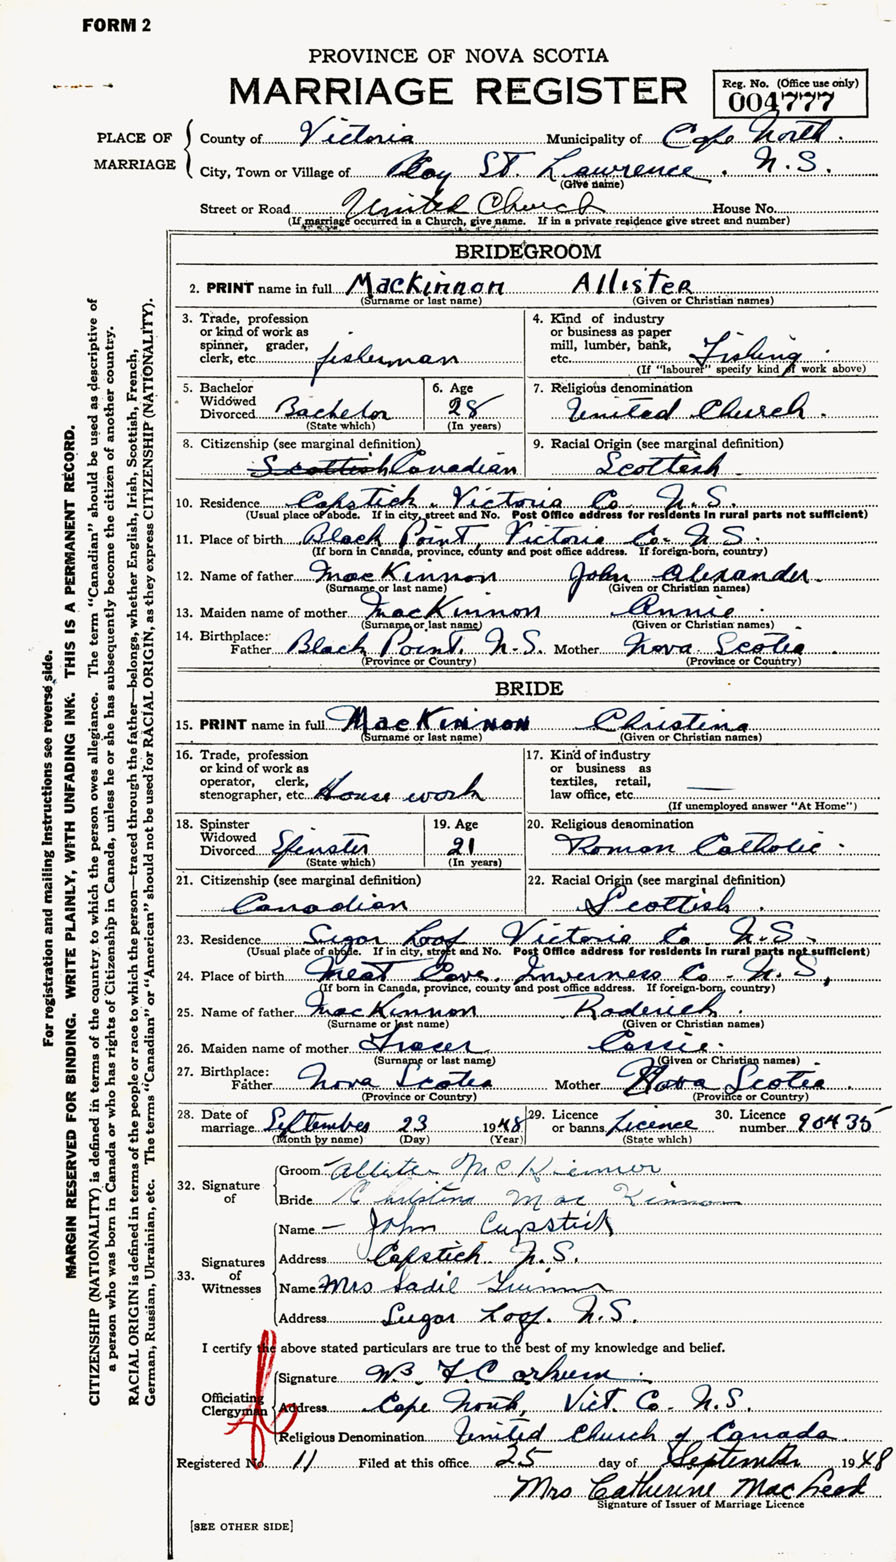 FORM 2
PROVINCE OF NOVA SCOTIA
MARRIAGE REGISTER
Reg. No. (Office use only)
004777
PLACE OF MARRIAGE
County of Victoria Municipality of Cape North.
City, Town or Village of Bay St. Lawrence. N.S.
(Give name)
Street or Road United Church House No.
(If marriage occurred in a Church, give name. If in a private residence give street and number)
BRIDEGROOM
2. PRINT name in full MacKinnon Allister
(Surname or last name) (Given or Christian names)
3. Trade, profession or kind of work as spinner, grader, clerk, etc. fisherman
4. Kind of industry or business as paper mill, lumber, bank, etc. Fishing
(If "labourer" specify kind of work above)
5. Bachelor Widowed Divorced Bachelor
(State which)
6. Age 28
(In years)
7. Religious denomination
United Church.
8. Citizenship (see marginal definition)
Scottish Canadian
9. Racial Origin (see marginal definition)
Scottish
10. Residence Capstick. Victoria Co N.S.
(Usual place of abode. If in city, street and No. Post Office address for residents in rural parts not sufficient)
11. Place of birth Black Point, Victoria Co. N.S.
(If born in Canada, province, county and post office address. If foreign-born, country)
12. Name of father MacKinnon John Alexander.
(Surname or last name) (Given or Christian names)
13. Maiden name of mother MacKinnon Annie.
(Surname or last name) (Given or Christian names)
14. Birthplace: Father Black Point. N.S. Mother Nova Scotia
(Province or Country) (Province or Country)
BRIDE
15. PRINT name in full MacKinnon Christina
(Surname or last name) (Given or Christian names)
16. Trade, profession or kind of work as operator, clerk, stenographer, etc. House work
17. Kind of industry or business as textiles, retail, law office, etc. —
(If unemployed answer "At Home")
18. Spinster Widowed Divorced Spinster
(State which)
19. Age 21
(In years)
20. Religious denomination
Roman Catholic.
21. Citizenship (see marginal definition)
Canadian
22. Racial Origin (see marginal definition)
Scottish.
23. Residence Sugar Loaf Victoria Co N.S.
(Usual place of abode. If in city, street and No. Post Office address for residents in rural parts not sufficient)
24. Place of birth Meat Cove. Inverness Co. N.S.
(If born in Canada, province, county and post office address. If foreign-born, country)
25. Name of father MacKinnon Roderick.
(Surname or last name) (Given or Christian names)
26. Maiden name of mother Fraser Cassie.
(Surname or last name) (Given or Christian names)
27. Birthplace: Father Nova Scotia Mother Nova Scotia
(Province or Country) (Province or Country)
28. Date of marriage September 23 1948
(Month by name) (Day) (Year)
29. Licence or banns Licence
(State which)
30. Licence number 90435
32. Signature of
Groom Allister McKinnon
Bride Christina MacKinnon
33. Signatures of Witnesses
Name — John Capstick
Address Capstick N.S.
Name Mrs Sadie
Address Sugar Loaf. N.S.
I certify the above stated particulars are true to the best of my knowledge and belief.
Officiating Clergyman
Signature W.
Address Cape North, Vict. Co. N.S.
Religious Denomination United Church of Canada
Registered No. 11 Filed at this office 25 day of September 1948
Mrs Catherine MacLeod
Signature of Issuer of Marriage Licence
[SEE OTHER SIDE]
For registration and mailing instructions see reverse side.
MARGIN RESERVED FOR BINDING. WRITE PLAINLY, WITH UNFADING INK. THIS IS A PERMANENT RECORD.
CITIZENSHIP (NATIONALITY) is defined in terms of the country to which the person owes allegiance. The term "Canadian" should be used as descriptive of
a person who was born in Canada or who has rights of Citizenship in Canada, unless he or she has subsequently become the citizen of another country.
RACIAL ORIGIN is defined in terms of the people or race to which the person—traced through the father—belongs, whether English, Irish, Scottish, French,
German, Russian, Ukrainian, etc. The terms "Canadian" or "American" should not be used for RACIAL ORIGIN, as they express CITIZENSHIP (NATIONALITY).